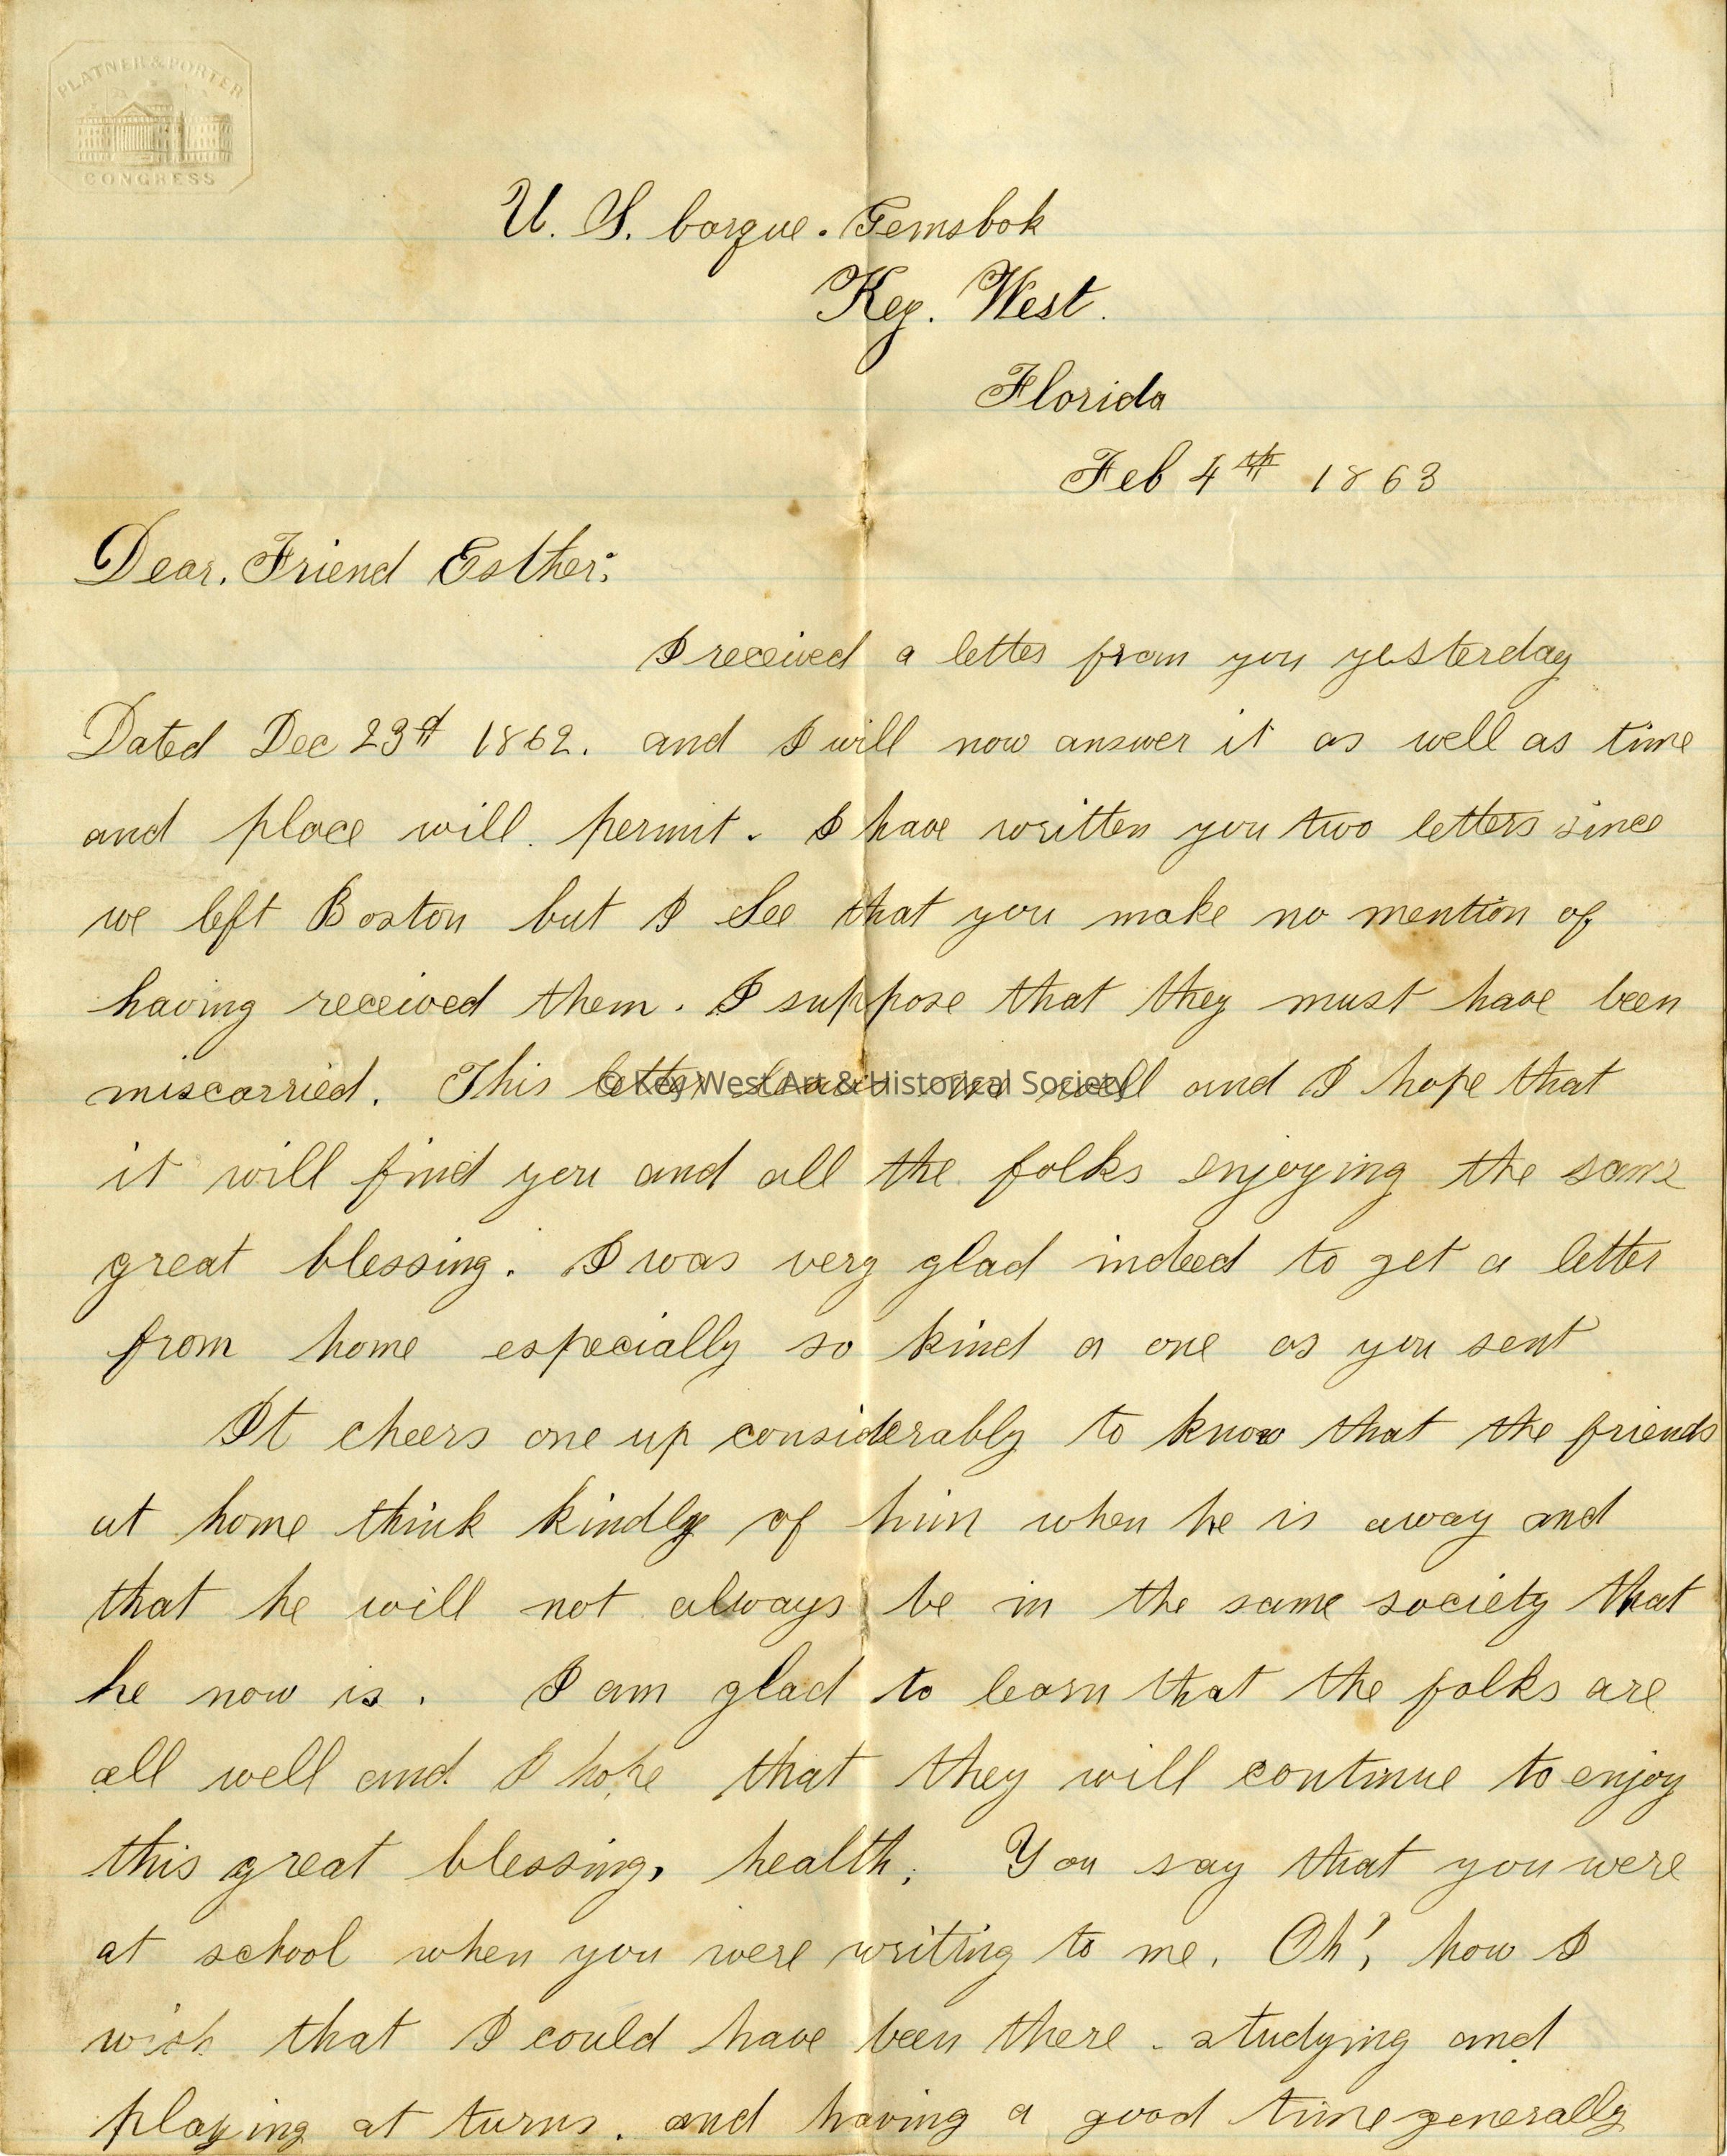 PLATNER & PORTER
CONGRESS
U. S. barque. Gemsbok
Key. West.
Florida
Feb 4th 1863
Dear. Friend Esther:
I received a letter from you yesterday
Dated Dec 23d 1862. and I will now answer it as well as time
and place will. permit. I have written you two letters since
we left Boston but I See that you make no mention of
having received them. I suppose that they must have been
miscarried. This letter leaves me well and I hope that
© Key West Art & Historical Society
it will find you and all the folks enjoying the same
great blessing. I was very glad indeed to get a letter
from home especially so kind a one as you sent
It cheers one up considerably to know that the friends
at home think kindly of him when he is away and
that he will not always be in the same society that
he now is. I am glad to learn that the folks are
all well and. I hope that they will continue to enjoy
this great blessing, health. You say that you were
at school when you were writing to me. Oh!, how I
wish that I could have been there - studying and
playing at turns. and having a good time generally